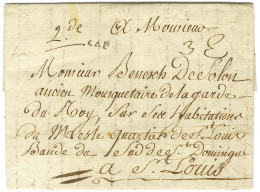 2. de A Monsieur
CAP
Monsieur Benesch DeSolon
ancien Mousquetaire de la garde
du Roy, Sur Ses habitations
du Mesle quartier de St Louis
Bande du Sud de St Domingue
a St Louis